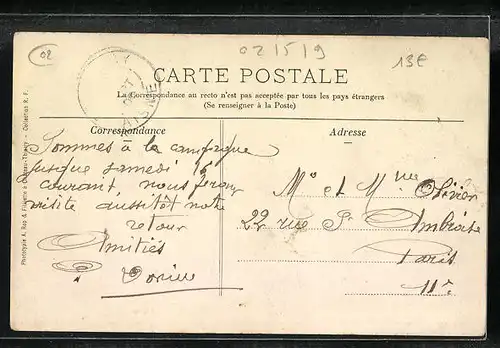 02
02/5/9
13€
CARTE POSTALE
La Correspondance au recto n'est pas acceptée par tous les pays étrangers
(Se renseigner à la Poste)
Correspondance
Sommes à la campagne
jusque samedi
courant, nous ferons
visite aussitôt note
retour
Amitiés
Adresse
Mr et Mme Olivier
22 rue St Ambroise
Paris
11e
AISNE
Phototypie A. Rep &
Collection R. F.